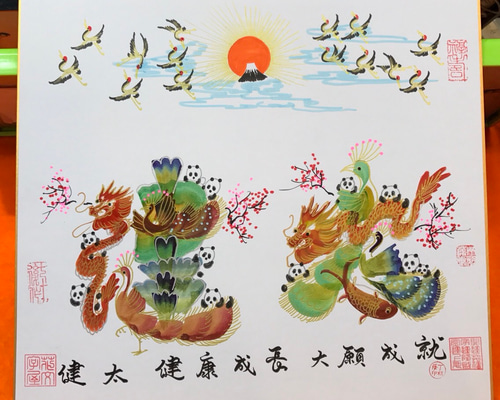 健太
健太 健康成長 大願成就